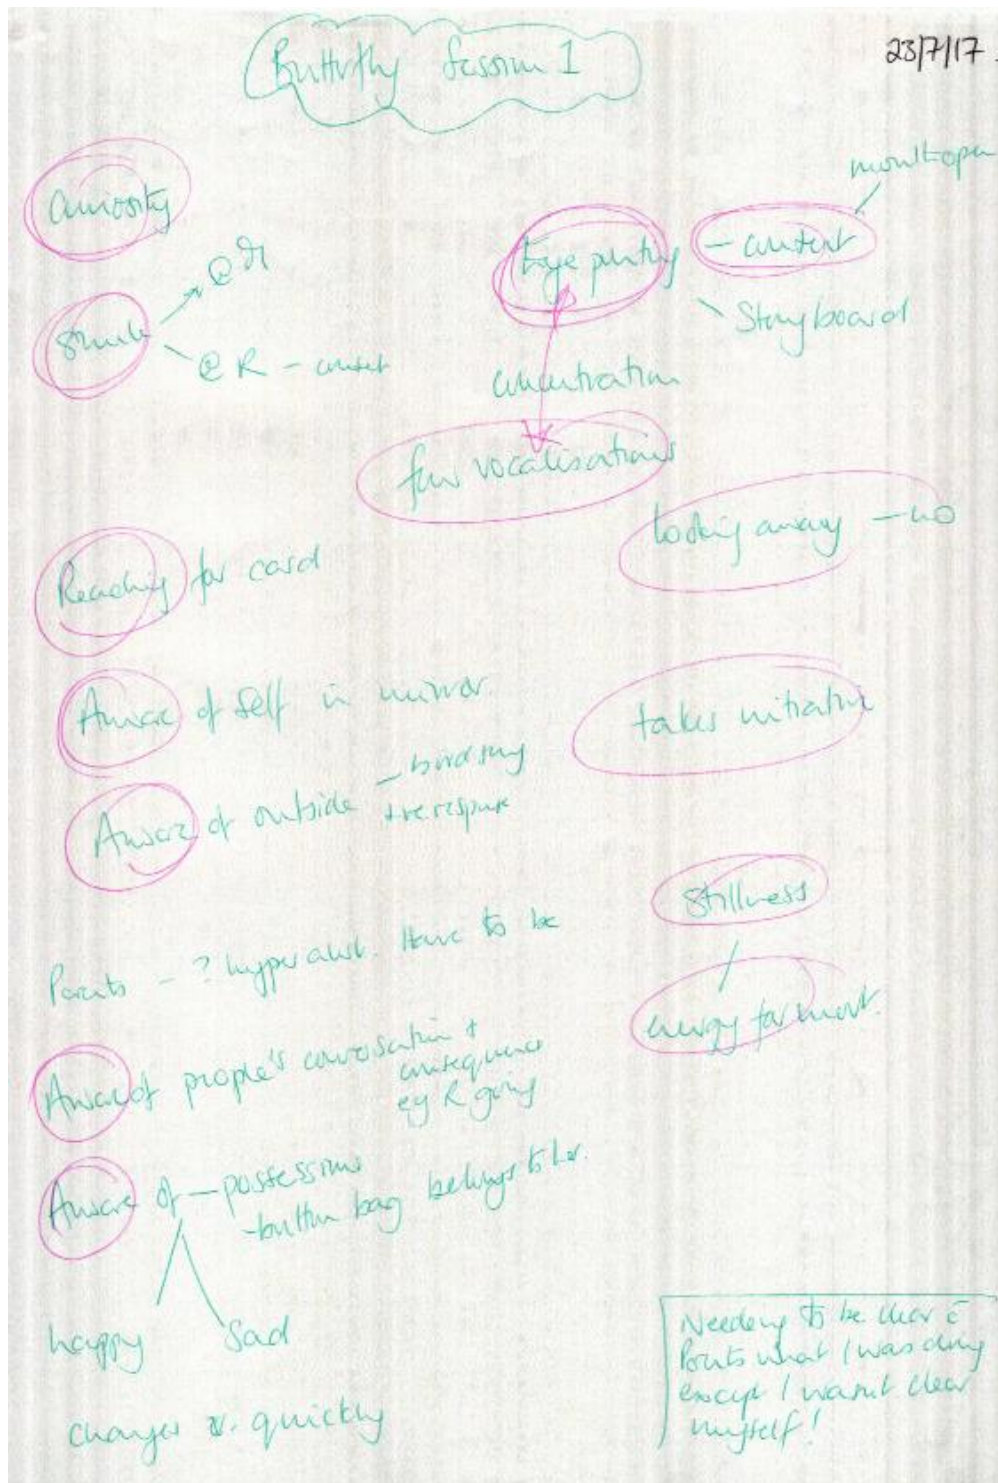 Butterfly Session 1
23/7/17
Curiosity
Smile
@ R - consent
Eye pointing
- consent
mouth open
Storyboard
concentration
few vocalisations
looking away - no
Reaching for card
Aware of self in mirror.
takes initiative
Aware of outside - birdsong
+ve response
Stillness
energy for movt.
Parents - ? hyper alert. Have to be
Aware of people's conversation +
consequence
eg R going
Aware of - possessions
- button bag belongs to her.
happy
Sad
Changes v. quickly
Needing to be clear c̄
Parents what I was doing
except I wasn't clear
myself!